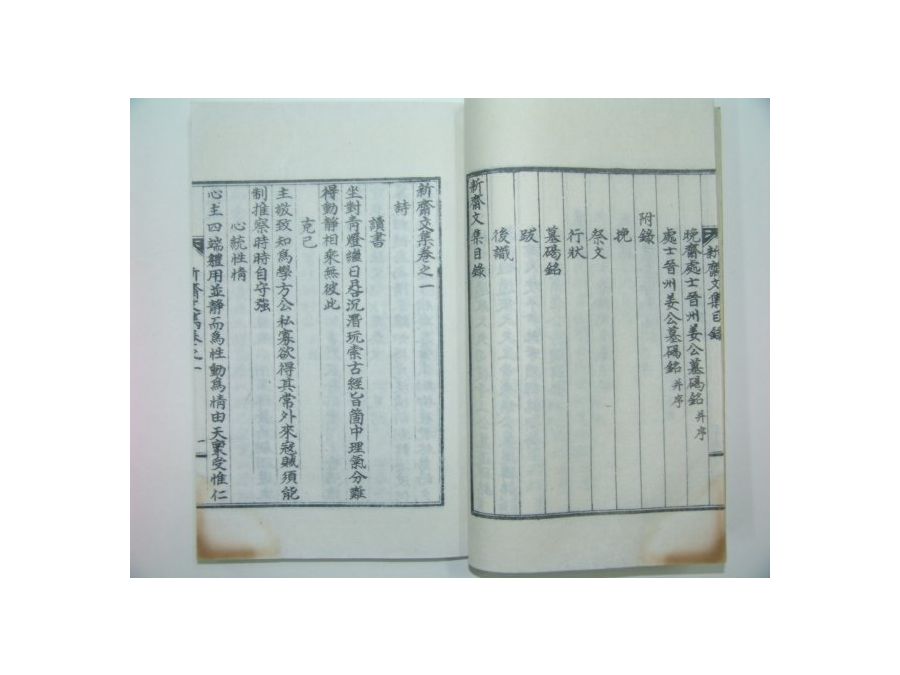 新齋文集目錄
晚齋處士晉州姜公墓碣銘 并序
處士晉州姜公墓碣銘 并序
附錄
挽
祭文
行狀
墓碣銘
跋
後識
新齋文集目錄
新齋文集卷之一
詩
讀書
坐對靑燈繼日晷沉潛玩索古經旨箇中理氣分難
得動靜相乘無彼此
克己
主敬致知爲學方公私寡欲得其常外來寇賊須能
制推察時時自守強
心統性情
心主四端體用並靜而爲性動爲情由天稟受惟仁
新齋文集卷之一
一